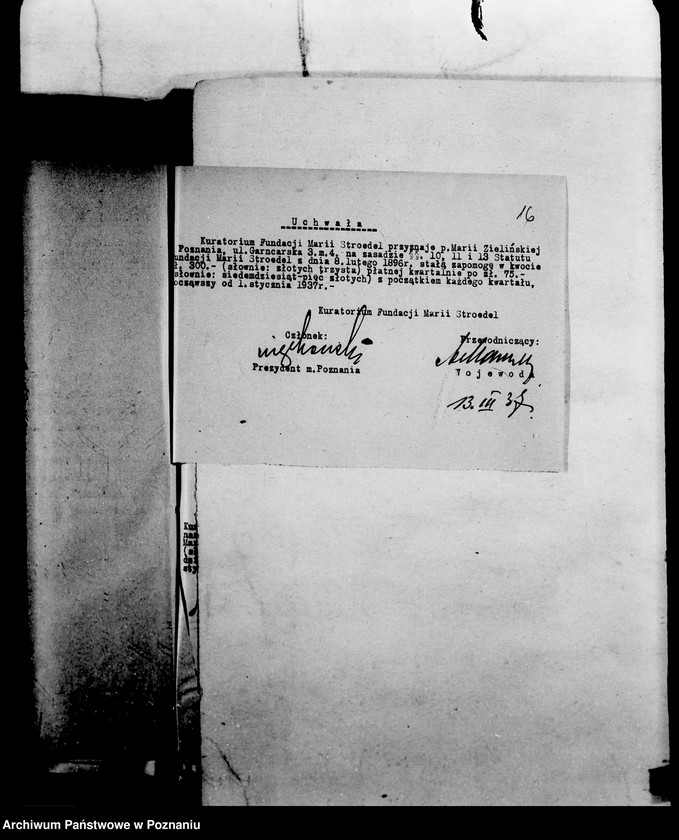 16
Uchwała
Kuratorium Fundacji Marii Stroedel przyznaje p.Marii Zielińskiej
Poznania, ul.Garncarska 3.m.4, na zasadzie §§. 10, 11 i 13 Statutu
undacji Marii Stroedel z dnia 8.lutego 1896r. stałą zapomogę w kwocie
ł. 300.- (słownie: złotych trzysta) płatnej kwartalnie po zł. 75.-
słownie: siedemdziesiąt-pięc złotych) z początkiem każdego kwartału,
począwszy od 1.stycznia 1937r.-
Kuratorium Fundacji Marii Stroedel
Członek: Przewodniczący:
Prezydent m.Poznania Wojewoda
13. III 37.
Kur
Mar
Archiwum Państwowe w Poznaniu